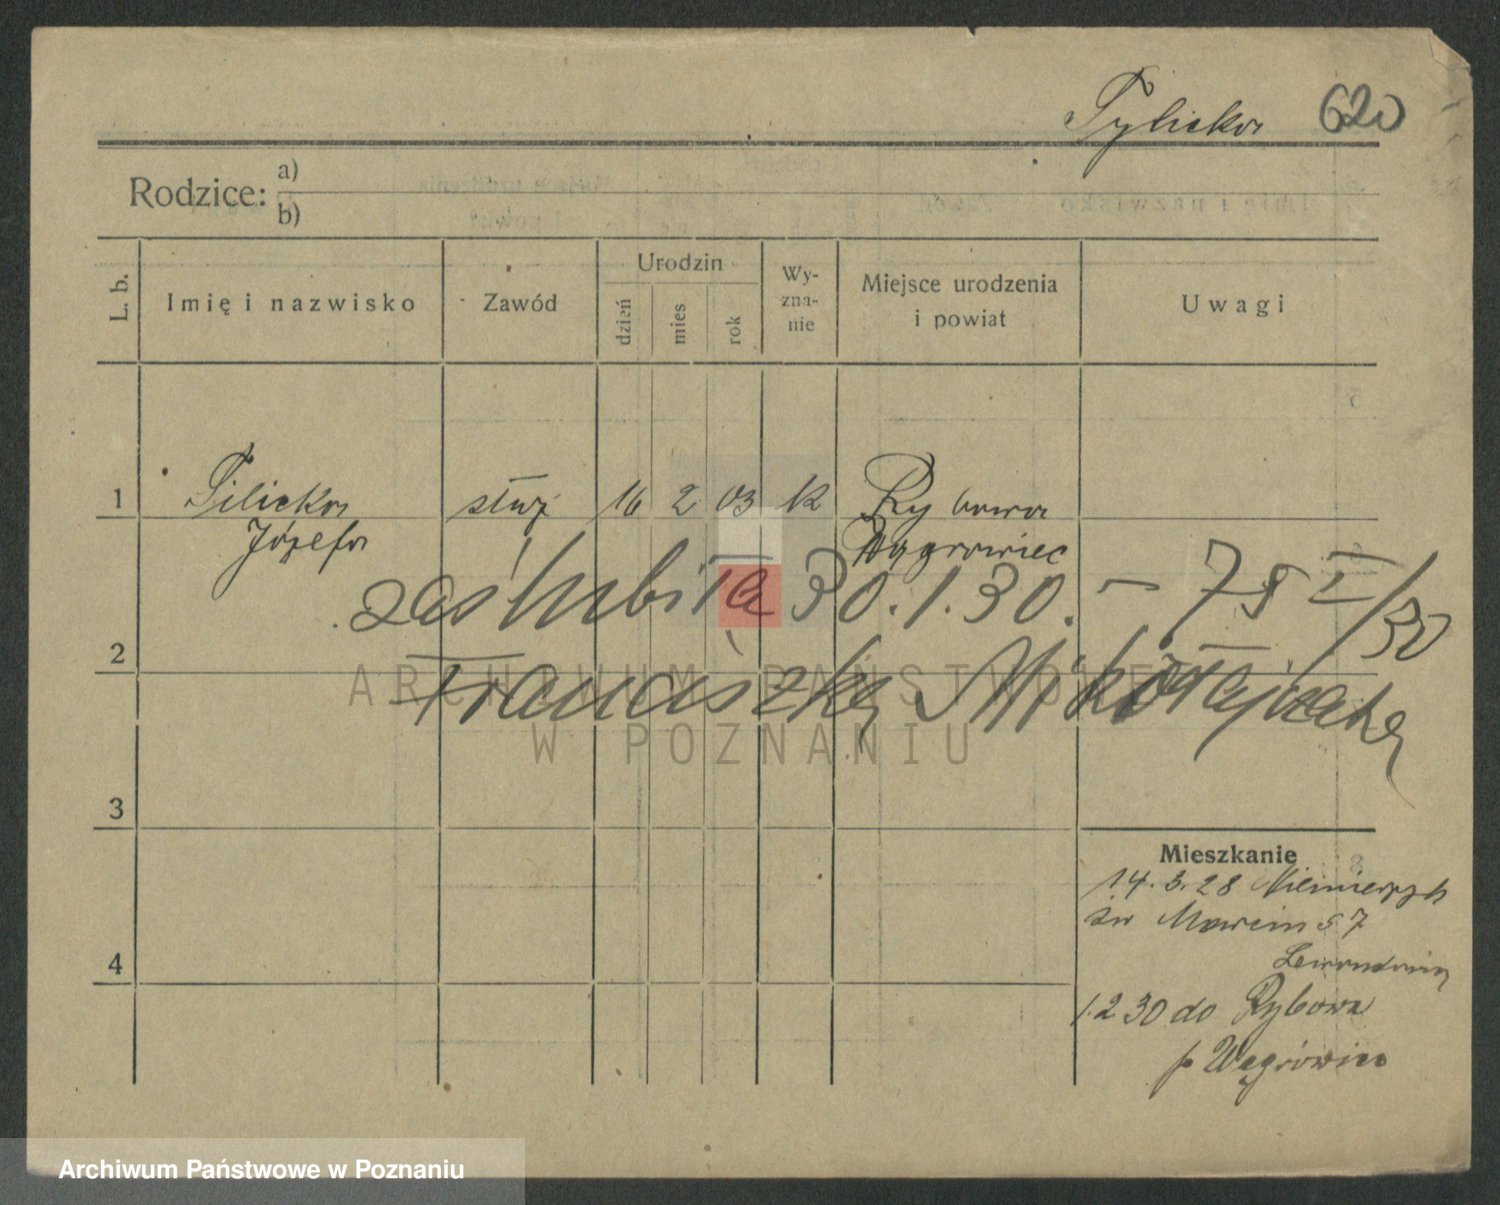 Tylicka 620
Rodzice: a)
b)
L. b. Imię i nazwisko Zawód Urodzin dzień mies rok Wy-zna-nie Miejsce urodzenia i powiat Uwagi
1 Tilicka służ 16 2 03 k Rybowa
Józefa Wągrowiec
zaślubiła 30.1.30. – 75 I/30
2
Franciszka Mikołajczaka
ARCHIWUM PAŃSTWOWE
W POZNANIU
3
Mieszkanie
14.3.28
św Marcin 57
4
1.2 30 do Rybowa
p Wągrówiec
Archiwum Państwowe w Poznaniu